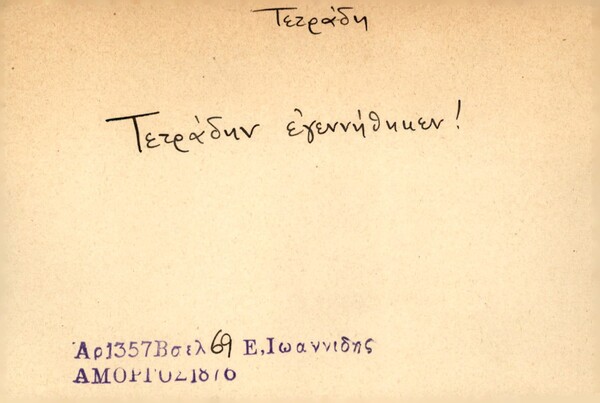 Τετράδη
Τετράδην ἐγεννήθηκεν!
Αρ1357Βσελ 69 Ε,Ιωαννιδης
ΑΜΟΡΓΟΣ1876